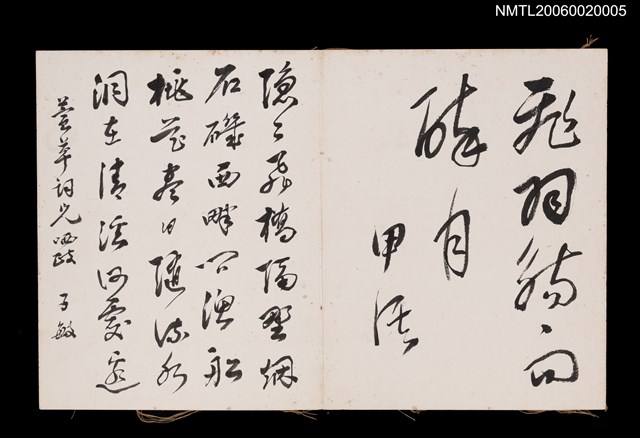 NMTL20060020005
飛羽觴而
醉月
甲
隱々飛橋隔野烟
石磯西畔問漁船
桃花盡日隨流水
洞在清溪何處邊
萱草詞兄哂政 子敏